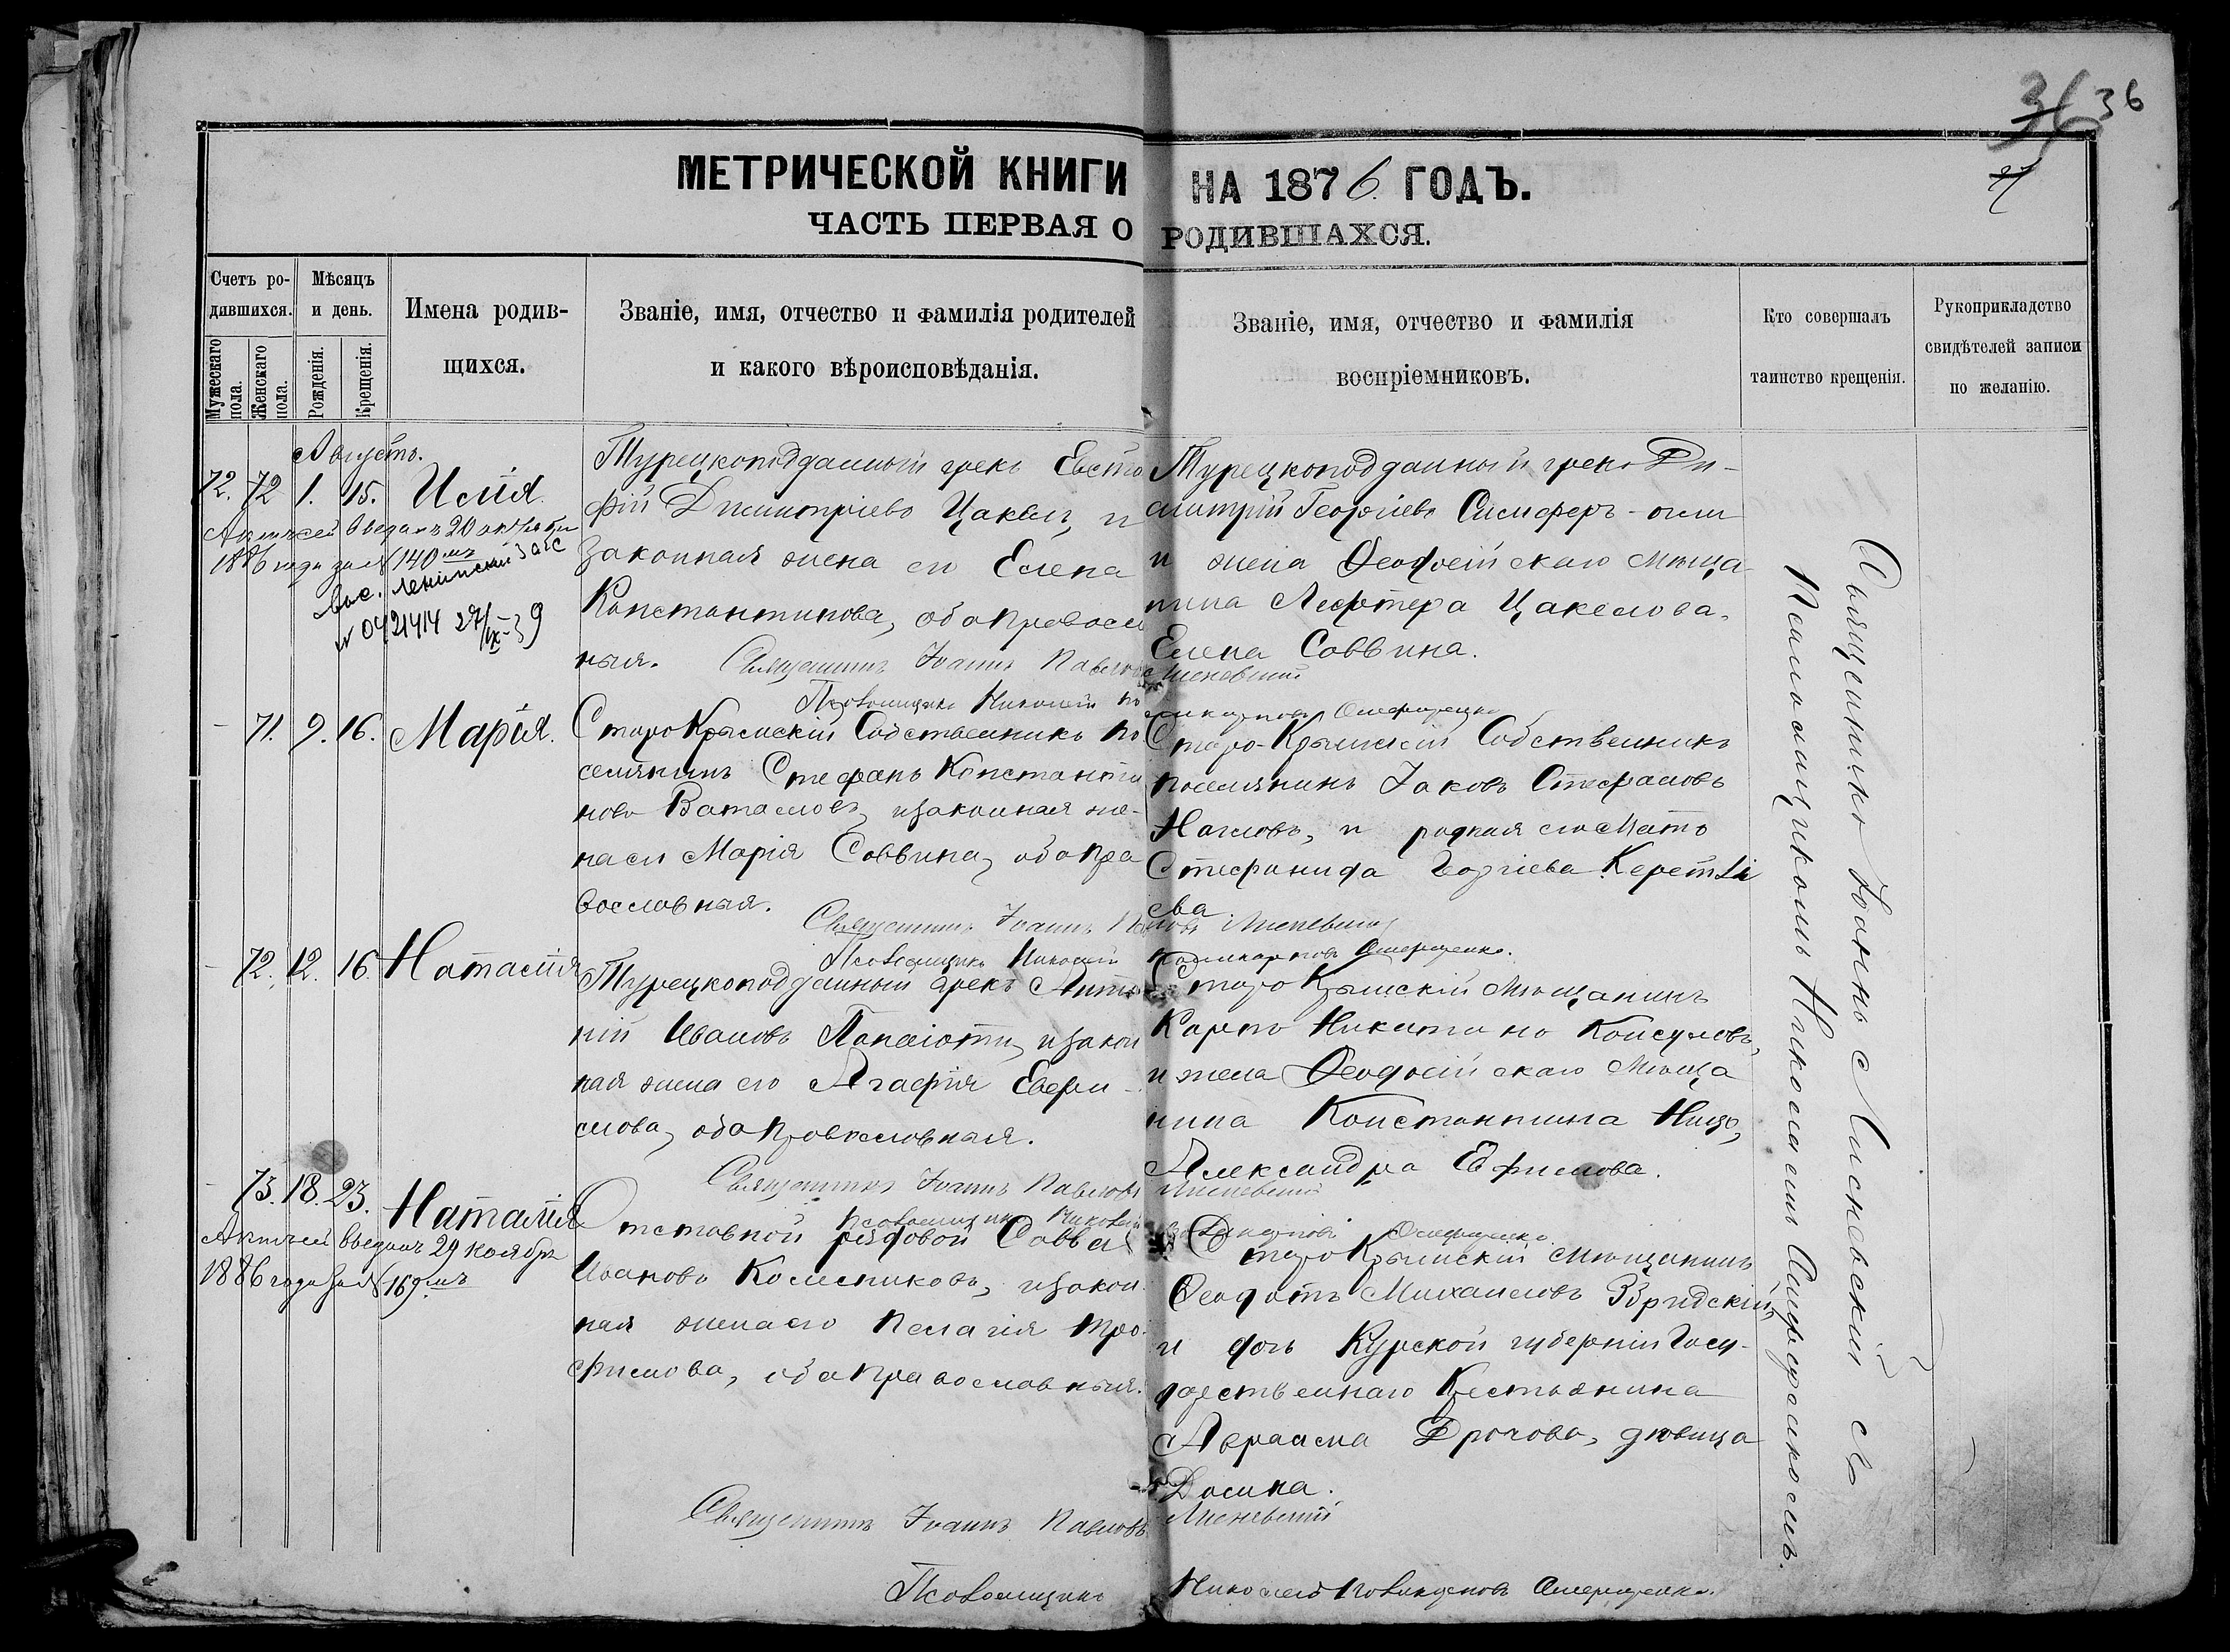 36 36
27
МЕТРИЧЕСКОЙ КНИГИ НА 1876. ГОДЪ.
ЧАСТЬ ПЕРВАЯ О РОДИВШАХСЯ.
Счетъ ро-
дившихся.
Мужескаго
пола.
Женскаго
пола.
Мѣсяцъ
и день.
Рожденія.
Крещенія.
Имена родив-
щихся.
Званіе, имя, отчество и фамилія родителей
и какого вѣроисповѣданія.
Званіе, имя, отчество и фамилія
воспріемниковъ.
Кто совершалъ
таинство крещенія.
Рукоприкладство
свидѣтелей записи
по желанію.
Августъ.
72. 72 1. 15. Илія.
Актъ сей выданъ 20 октября
1886 года за № 140мъ
Ленинский загс
№ 0421414 27/IX-39
Турецкоподданный грекъ Евста
фій Димитріевъ Цакелъ, и
законная жена его Елена
Константинова, оба православ
ныя.
Священникъ Іоаннъ Павловъ Лисневскій
Турецкоподданный грекъ Ди-
митрій Георгіевъ
и жена Ѳеодосійскаго мѣща
нина Лефтера Цакелова,
Елена Саввина.
Псаломщикъ Николай
- 71. 9. 16. Марія.
Старокрымскій Собственникъ по
селянинъ Стефанъ Константи
новъ и законная же-
на его Марія Саввина, оба пра
вославныя.
Священникъ Іоаннъ Лисневскій
Псаломщикъ Николай
Старо-Крымскій Собственникъ
поселянинъ Іаковъ Стефановъ
и родная его мать
Стефанида Георгіева
ева.
- 72. 12. 16. Наталія
Турецкоподданный грекъ Анто
ній Ивановъ Панаіоти, и закон
ная жена его Агафія
оба православныя.
Священникъ Іоаннъ Павловъ Лисневскій
Псаломщикъ Николай
Старо Крымскій мѣщанинъ
Карпъ Никитинъ Консуловъ,
и жена Ѳеодосійскаго мѣща
нина Константина
Александра Ефимова.
- 73. 18. 23. Наталія
Актъ сей выданъ 29 ноября
1886 года за № 169.мъ
Отставной рядовой Савва
Ивановъ Колесниковъ, и закон
ная жена его Пелагія Тро-
фимова, оба православныя.
Старо Крымскій мѣщанинъ
Ѳеодотъ Михаиловъ
и дочь Курской губерніи Госу-
дарственнаго Крестьянина
Авраама дѣвица
Священникъ Іоаннъ Павловъ Лисневскій
Псаломщикъ Николай
Священникъ Іоаннъ Лисневскій съ
Псаломщикомъ Николаемъ